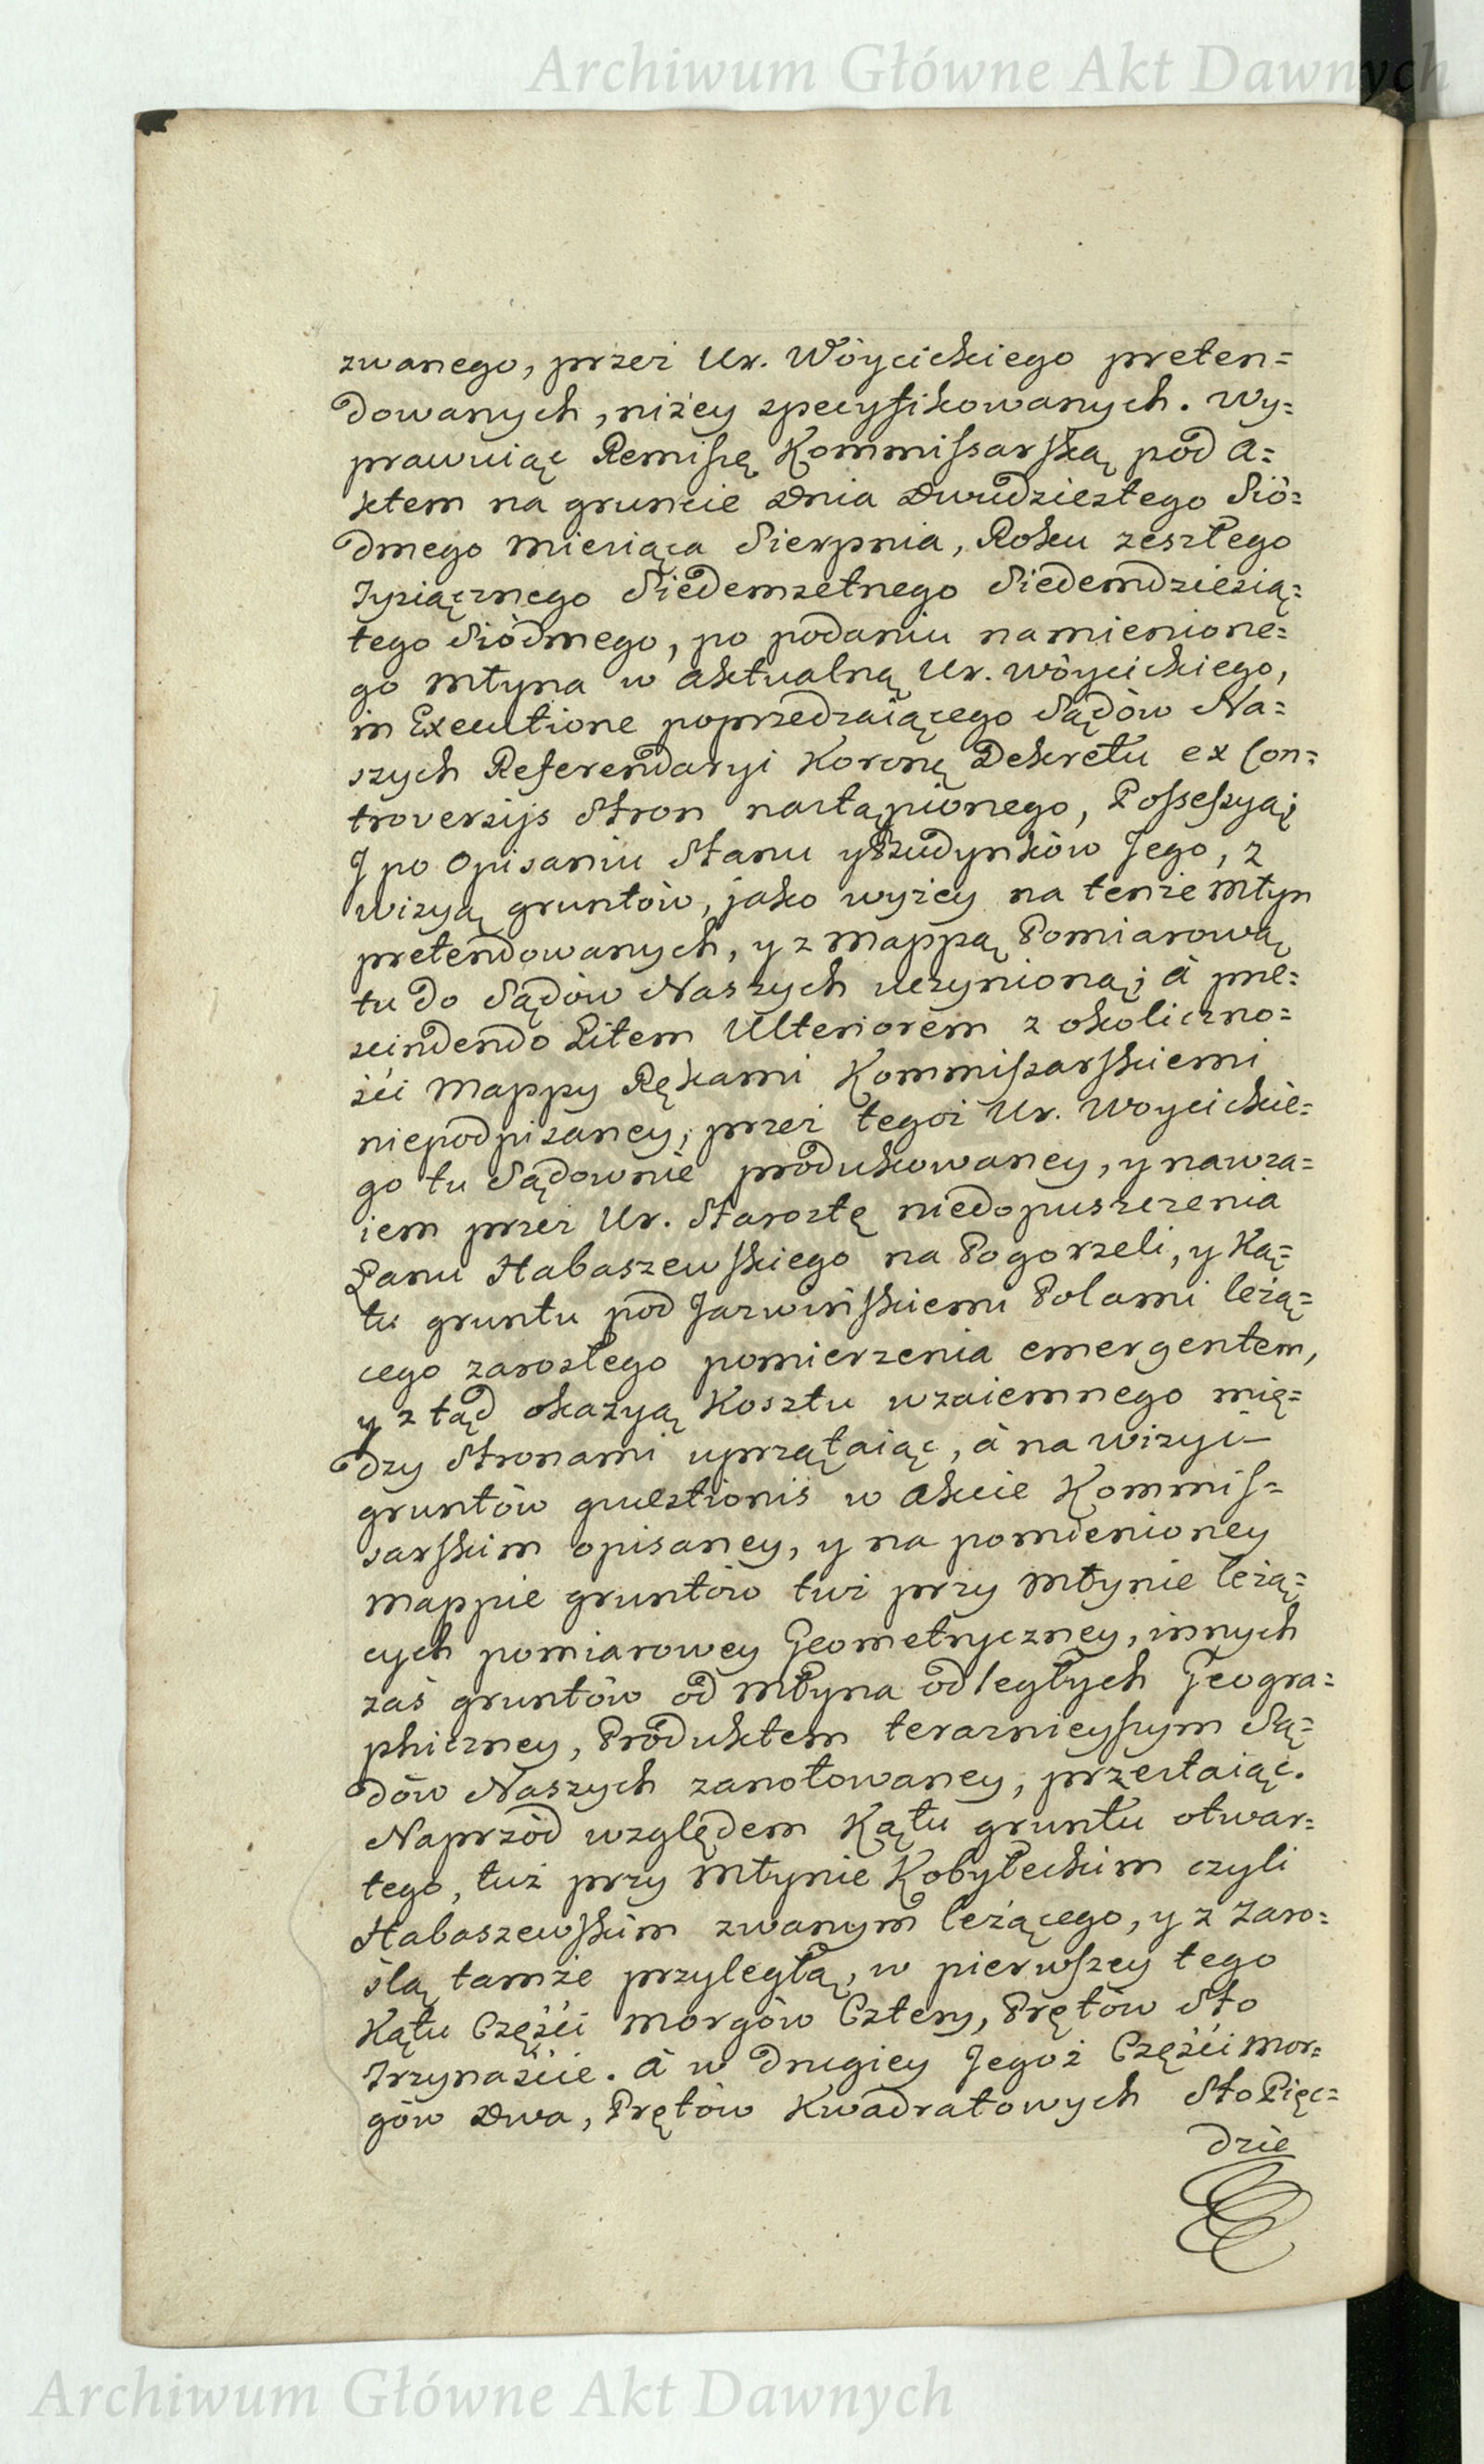 Archiwum Główne Akt Dawnych
zwanego, przez Ur. Wóycickiego preten=
dowanych, niżey specyfikowanych. Wy=
prawuiąc Remissę Kommissarską pod A=
ktem na gruncie Dnia Dwudziestego Sió=
dmego Miesiąca Sierpnia, Roku zeszłego
Tysiącznego Siedemsetnego Siedemdziesią=
tego Siódmego, po podaniu namienione=
go Młyna w aktualną Ur. Wóycickiego,
in Executione poprzedzaiącego Sądów Na=
szych Referendaryi Koronę Dekretu ex Con=
troversijs Stron nastąpionego, Possessyą;
J po Opisaniu Stanu y Budynków Jego, z
wizyą gruntów, jako wyżey na tenże Młyn
pretendowanych, y z Mappą Pomiarową
tu do Sądów Naszych uczynioną; à pre=
scindendo Litem Ulteriorem z okoliczno=
ści Mappy Rękami Kommissarskiemi
niepodpisaney, przez tegoż Ur. Woycickie=
go tu Sądownie produkowaney, y nawza=
iem przez Ur. Starostę niedopuszczenia
Panu Habaszewskiego na Pogorzeli, y Ką=
tu gruntu pod Jarwińskiemi Polami leżą=
cego zarosłego pomierzenia emergentem,
y z tąd okazyą Kosztu wzaiemnego mię=
dzy Stronami uprzątaiąc, à na wizyi
gruntów quæstionis w Akcie Kommis=
sarskim opisaney, y na pomienioney
Mappie gruntów tuż przy Młynie leżą=
cych pomiarowey Geometryczney, innych
zaś gruntów od Młyna odległych Geogra=
phiczney, Produktem teraznieyszym Są=
dów Naszych zanotowaney, przestaiąc.
Naprzód względem Kątu gruntu otwar=
tego, tuż przy Młynie Kobyłeckim czyli
Habaszewskim zwanym leżącego, y z Zaro=
ślą tamże przyległą, w pierwszey tego
Kątu Części Morgów Cztery, Prętów Sto
Trzynaście. à w drugiey Jegoż Części Mor=
gów Dwa, Prętów Kwadratowych Sto Pięć=
dzie
Archiwum Główne Akt Dawnych